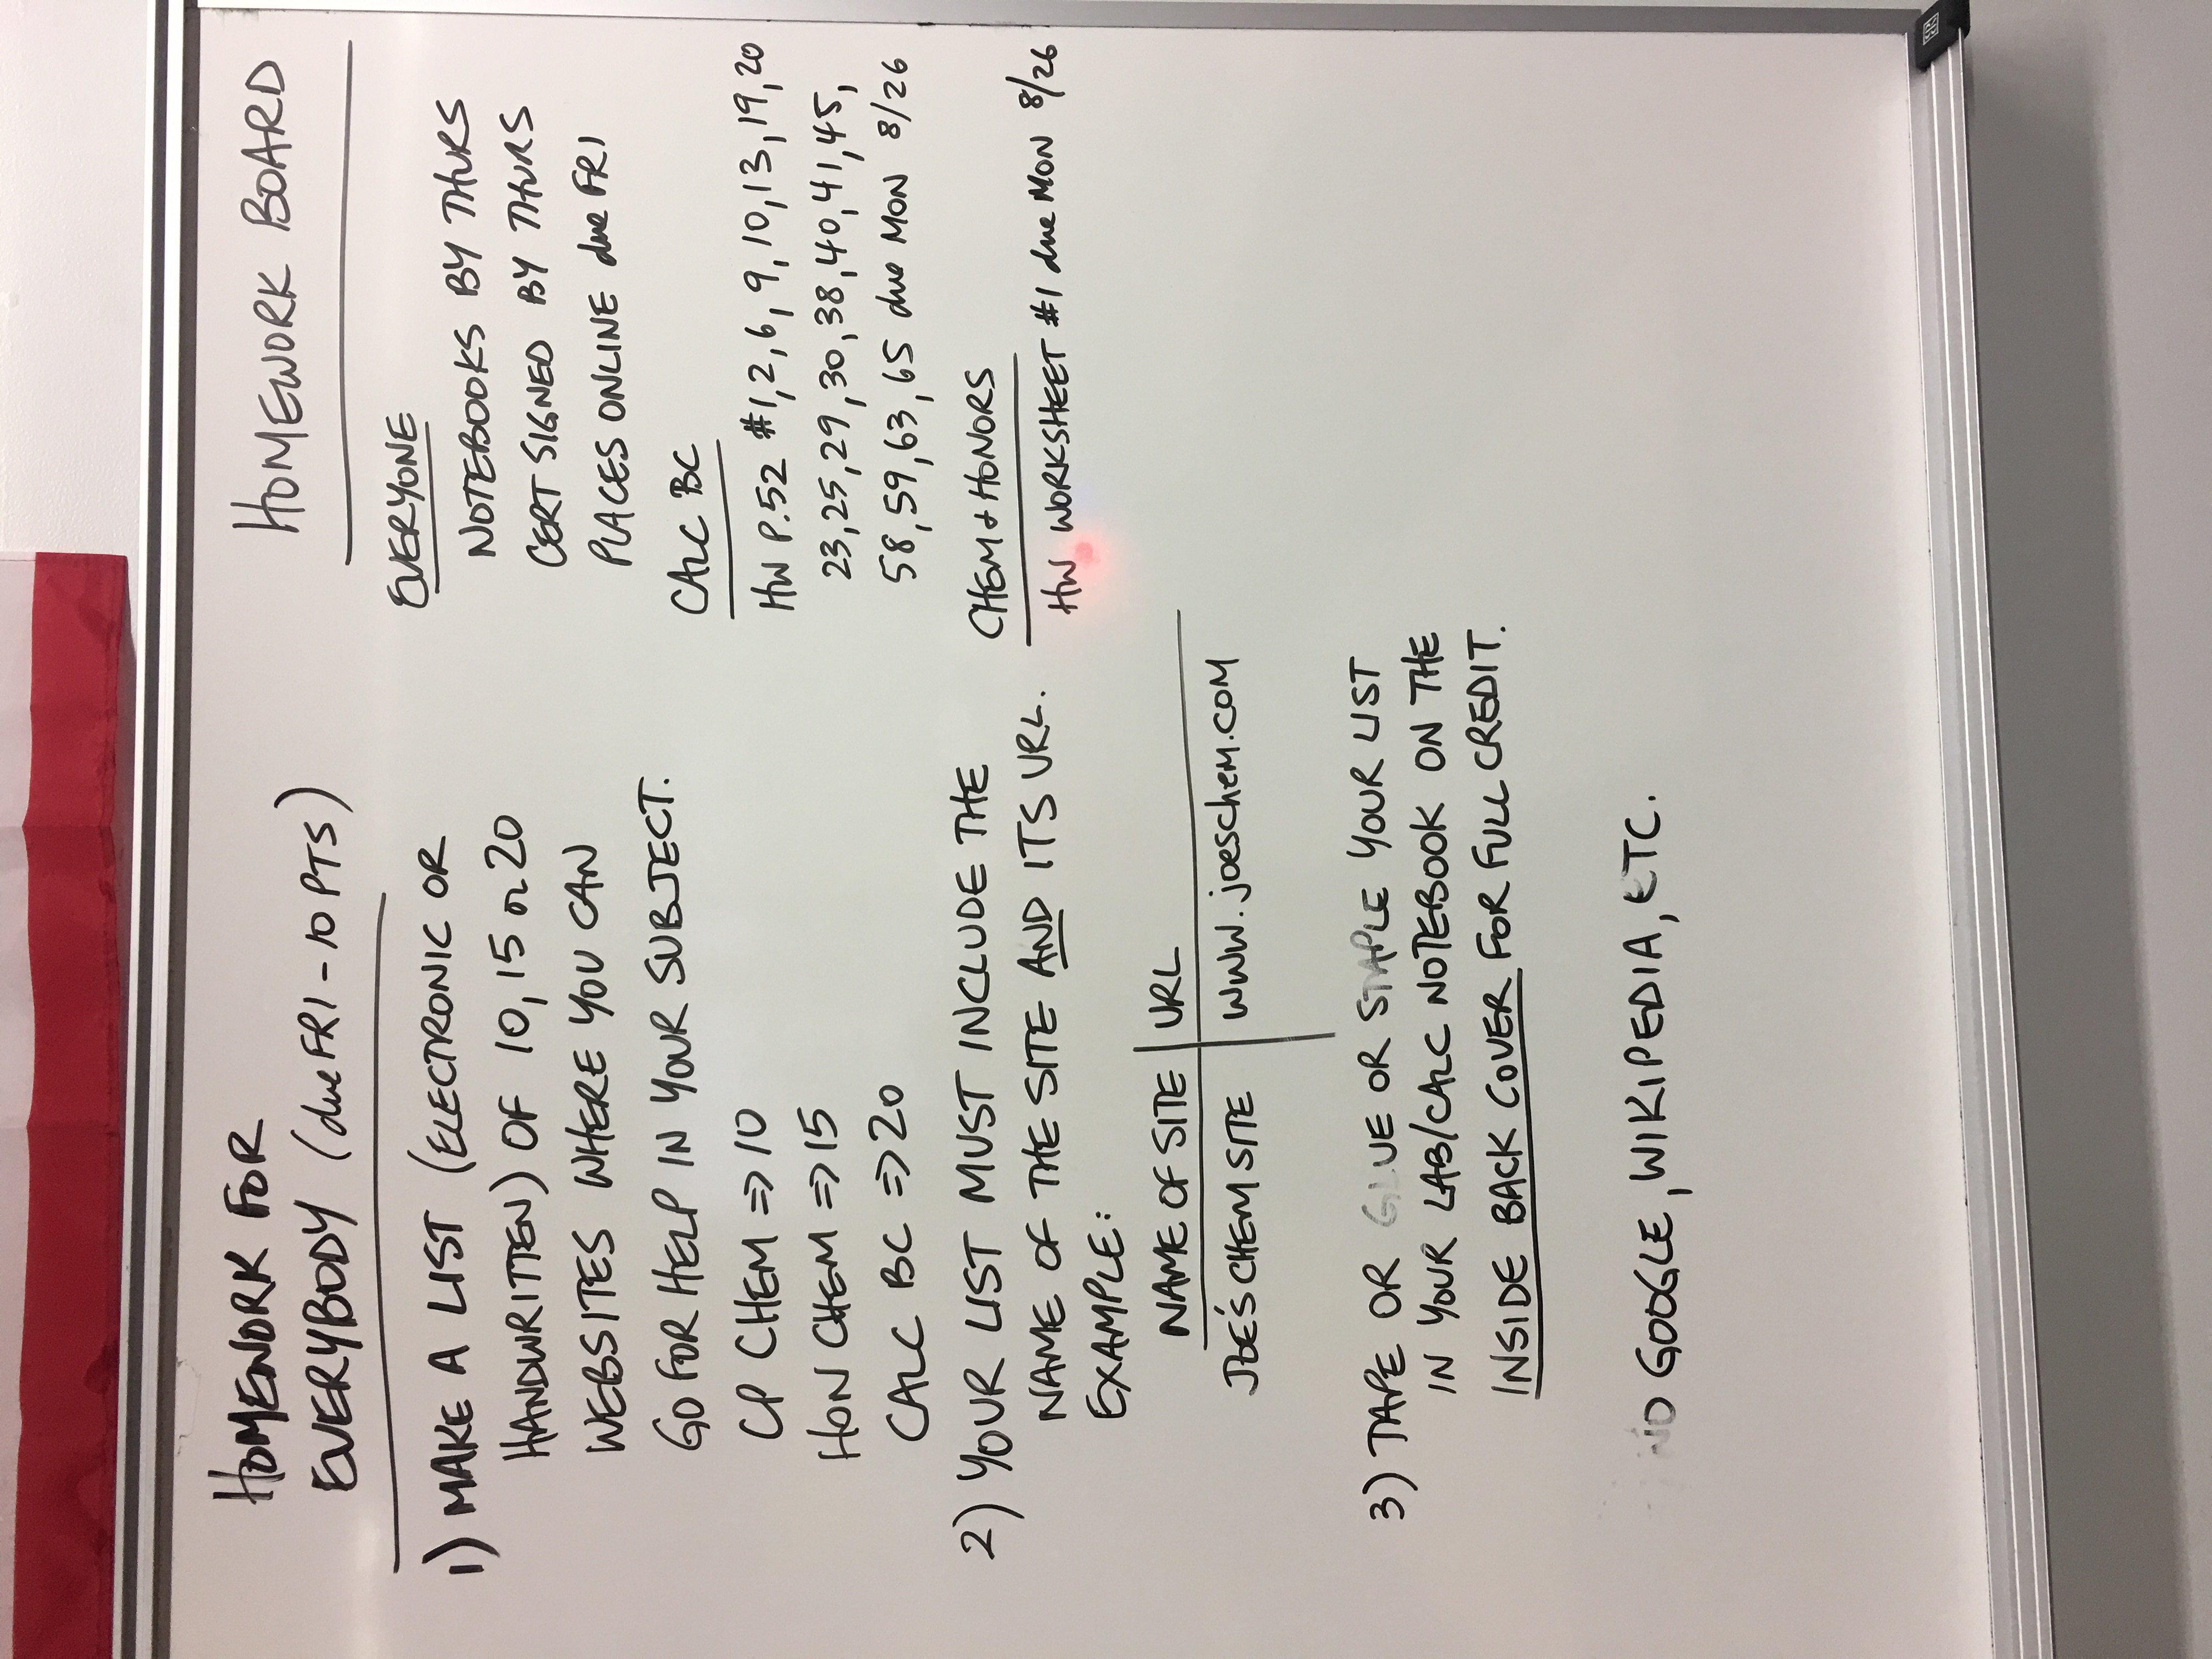 HOMEWORK FOR
EVERYBODY (due FRI - 10 PTS)
1) MAKE A LIST (ELECTRONIC OR
HANDWRITTEN) OF 10, 15 or 20
WEBSITES WHERE YOU CAN
GO FOR HELP IN YOUR SUBJECT.
CP CHEM ⇒ 10
HON CHEM ⇒ 15
CALC BC ⇒ 20
2) YOUR LIST MUST INCLUDE THE
NAME OF THE SITE AND ITS URL.
EXAMPLE:
NAME OF SITE | URL
JOE'S CHEM SITE | www.joeschem.com
3) TAPE OR GLUE OR STAPLE YOUR LIST
IN YOUR LAB/CALC NOTEBOOK ON THE
INSIDE BACK COVER FOR FULL CREDIT.
NO GOOGLE, WIKIPEDIA, ETC.
HOMEWORK BOARD
EVERYONE
NOTEBOOKS BY THURS
CERT SIGNED BY THURS
PLACES ONLINE due FRI
CALC BC
HW P.52 #1,2,6,9,10,13,19,20
23,25,29,30,38,40,41,45,
58,59,63,65 due MON 8/26
CHEM & HONORS
HW WORKSHEET #1 due MON 8/26